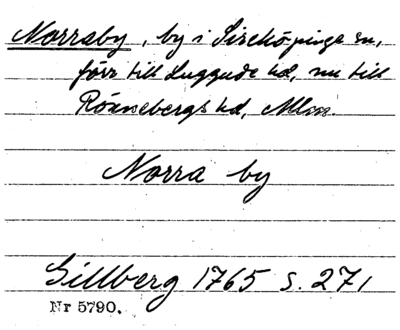 Norraby, by i Sireköpinge sn,
förr till Luggude hd, nu till
Rönnebergs hd, Mlm.
Norra by
Gillberg 1765 s. 271
Nr 5790.